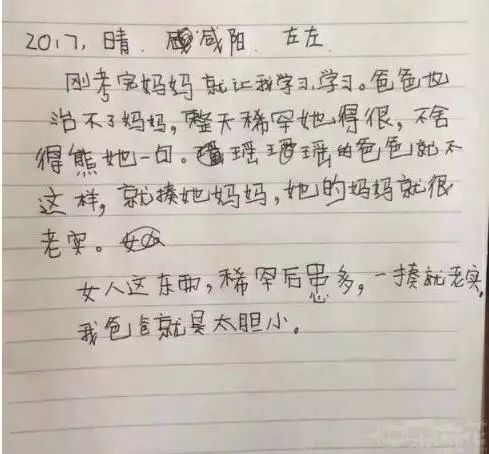 2017, 晴. 咸阳. 左左.
刚考完妈妈就让我学习,学习。爸爸也
治不了妈妈, 整天稀罕她得很, 不舍
得熊她一句。瑶瑶的爸爸就不
这样, 就揍她妈妈, 她的妈妈就很
老实。
女人这东西, 稀罕后患多, 一揍就老实,
我爸爸就是太胆小。